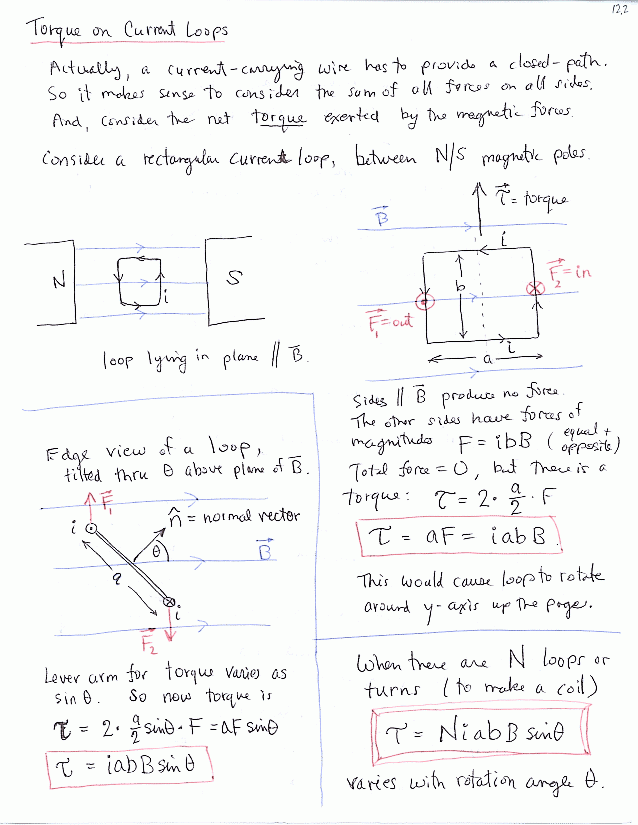 12.2
Torque on Current Loops
Actually, a current-carrying wire has to provide a closed-path.
So it makes sense to consider the sum of all forces on all sides.
And, consider the net torque exerted by the magnetic forces.
Consider a rectangular current loop, between N/S magnetic poles.
N
i
S
loop lying in plane // B⃗.
B⃗
τ⃗ = torque
i
b
F⃗₂ = in
F⃗₁ = out
i
a
Sides // B⃗ produce no force.
The other sides have forces of
magnitudes F = ibB (equal + opposite)
Total force = 0, but there is a
torque: τ = 2 · a/2 · F
τ = aF = iabB
This would cause loop to rotate
around y-axis up the page.
Edge view of a loop,
tilted thru θ above plane of B⃗.
F⃗₁
i
n̂ = normal vector
θ
B⃗
a
i
F⃗₂
Lever arm for torque varies as
sin θ. So now torque is
τ = 2 · a/2 sinθ · F = aF sinθ
τ = iabB sinθ
When there are N loops or
turns (to make a coil)
τ = NiabB sinθ
varies with rotation angle θ.